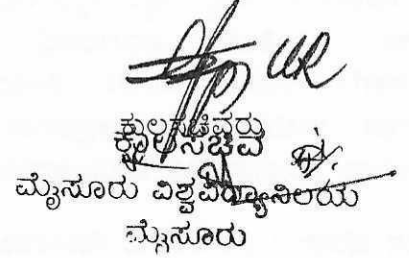 ಕುಲಸಚಿವರು
ಕುಲಸಚಿವ
ಮೈಸೂರು ವಿಶ್ವವಿದ್ಯಾನಿಲಯ
ಮೈಸೂರು